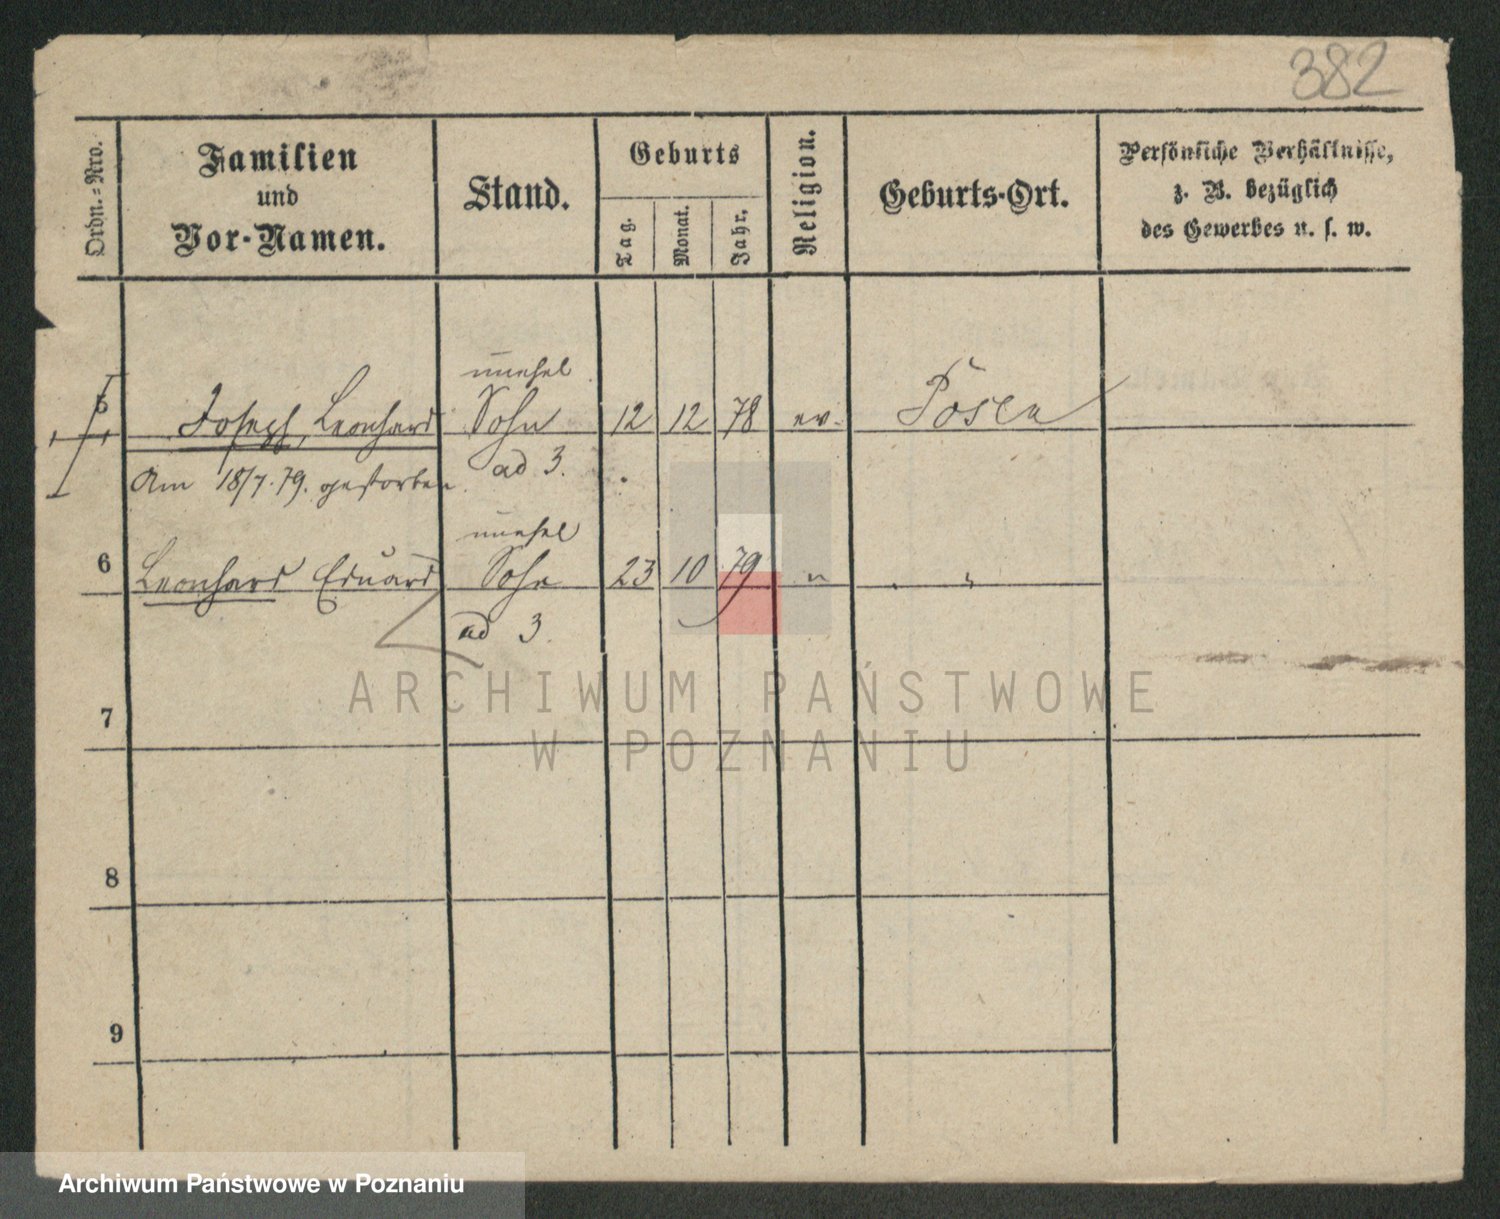 382
Ordn.-Nro.
Familien
und
Vor-Namen.
Stand.
Geburts
Tag.
Monat.
Jahr.
Religion.
Geburts-Ort.
Persönliche Verhältnisse,
z. B. bezüglich
des Gewerbes u. s. w.
unehel
5 Joseph, Leonhard Sohn 12 12 78 ev. Posen
Am 18/7.79. gestorben ad 3.
unehel
6 Leonhard Eduard Sohn 23 10 79 " "
ad 3.
ARCHIWUM PAŃSTWOWE
W POZNANIU
7
8
9
Archiwum Państwowe w Poznaniu